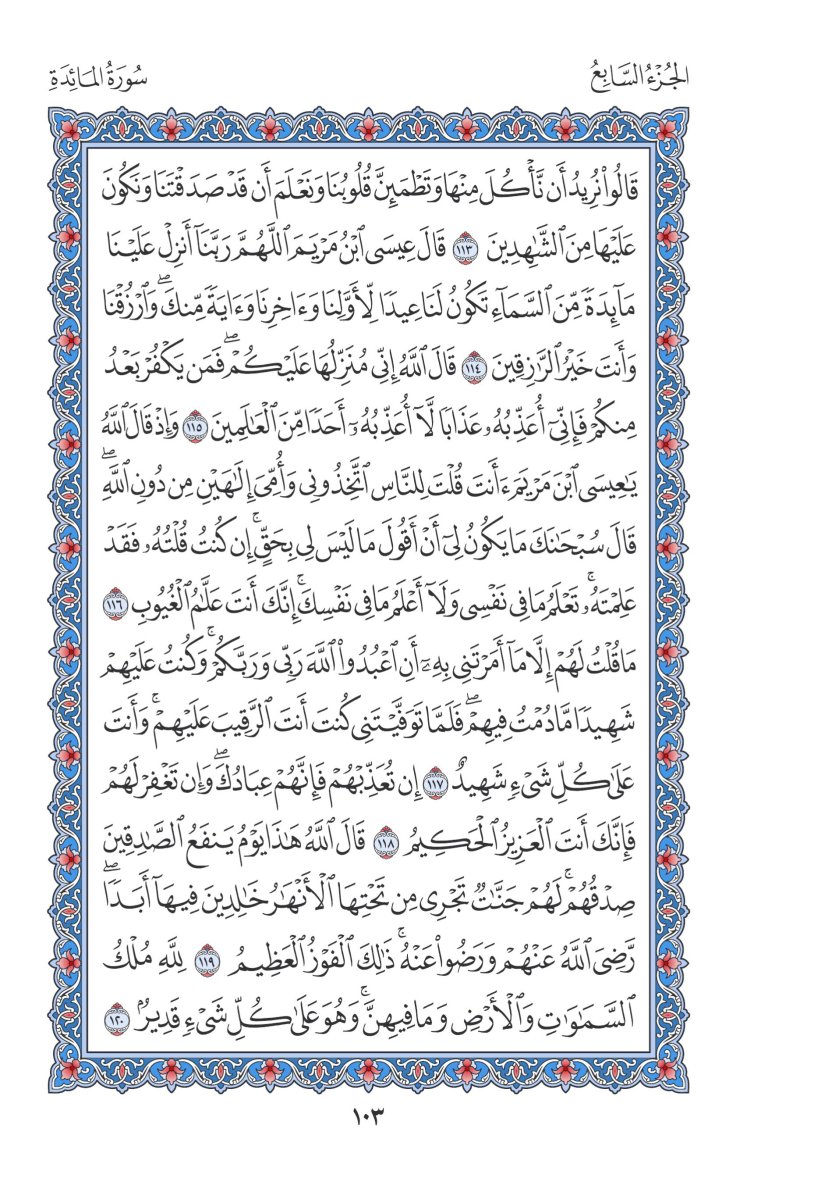 الجُزْءُ السَّابِعُ
سُورَةُ المَائِدَةِ
قَالُوا۟ نُرِيدُ أَن نَّأۡكُلَ مِنۡهَا وَتَطۡمَئِنَّ قُلُوبُنَا وَنَعۡلَمَ أَن قَدۡ صَدَقۡتَنَا وَنَكُونَ
عَلَيۡهَا مِنَ ٱلشَّٰهِدِينَ ١١٣ قَالَ عِيسَى ٱبۡنُ مَرۡيَمَ ٱللَّهُمَّ رَبَّنَآ أَنزِلۡ عَلَيۡنَا
مَآئِدَةٗ مِّنَ ٱلسَّمَآءِ تَكُونُ لَنَا عِيدٗا لِّأَوَّلِنَا وَءَاخِرِنَا وَءَايَةٗ مِّنكَۖ وَٱرۡزُقۡنَا
وَأَنتَ خَيۡرُ ٱلرَّٰزِقِينَ ١١٤ قَالَ ٱللَّهُ إِنِّي مُنَزِّلُهَا عَلَيۡكُمۡۖ فَمَن يَكۡفُرۡ بَعۡدُ
مِنكُمۡ فَإِنِّيٓ أُعَذِّبُهُۥ عَذَابٗا لَّآ أُعَذِّبُهُۥٓ أَحَدٗا مِّنَ ٱلۡعَٰلَمِينَ ١١٥ وَإِذۡ قَالَ ٱللَّهُ
يَٰعِيسَى ٱبۡنَ مَرۡيَمَ ءَأَنتَ قُلۡتَ لِلنَّاسِ ٱتَّخِذُونِي وَأُمِّيَ إِلَٰهَيۡنِ مِن دُونِ ٱللَّهِۖ
قَالَ سُبۡحَٰنَكَ مَا يَكُونُ لِيٓ أَنۡ أَقُولَ مَا لَيۡسَ لِي بِحَقٍّۚ إِن كُنتُ قُلۡتُهُۥ فَقَدۡ
عَلِمۡتَهُۥۚ تَعۡلَمُ مَا فِي نَفۡسِي وَلَآ أَعۡلَمُ مَا فِي نَفۡسِكَۚ إِنَّكَ أَنتَ عَلَّٰمُ ٱلۡغُيُوبِ ١١٦
مَا قُلۡتُ لَهُمۡ إِلَّا مَآ أَمَرۡتَنِي بِهِۦٓ أَنِ ٱعۡبُدُوا۟ ٱللَّهَ رَبِّي وَرَبَّكُمۡۚ وَكُنتُ عَلَيۡهِمۡ
شَهِيدٗا مَّا دُمۡتُ فِيهِمۡۖ فَلَمَّا تَوَفَّيۡتَنِي كُنتَ أَنتَ ٱلرَّقِيبَ عَلَيۡهِمۡۚ وَأَنتَ
عَلَىٰ كُلِّ شَيۡءٖ شَهِيدٌ ١١٧ إِن تُعَذِّبۡهُمۡ فَإِنَّهُمۡ عِبَادُكَۖ وَإِن تَغۡفِرۡ لَهُمۡ
فَإِنَّكَ أَنتَ ٱلۡعَزِيزُ ٱلۡحَكِيمُ ١١٨ قَالَ ٱللَّهُ هَٰذَا يَوۡمُ يَنفَعُ ٱلصَّٰدِقِينَ
صِدۡقُهُمۡۚ لَهُمۡ جَنَّٰتٞ تَجۡرِي مِن تَحۡتِهَا ٱلۡأَنۡهَٰرُ خَٰلِدِينَ فِيهَآ أَبَدٗاۖ
رَّضِيَ ٱللَّهُ عَنۡهُمۡ وَرَضُوا۟ عَنۡهُۚ ذَٰلِكَ ٱلۡفَوۡزُ ٱلۡعَظِيمُ ١١٩ لِلَّهِ مُلۡكُ
ٱلسَّمَٰوَٰتِ وَٱلۡأَرۡضِ وَمَا فِيهِنَّۚ وَهُوَ عَلَىٰ كُلِّ شَيۡءٖ قَدِيرُۢ ١٢٠
١٠٣